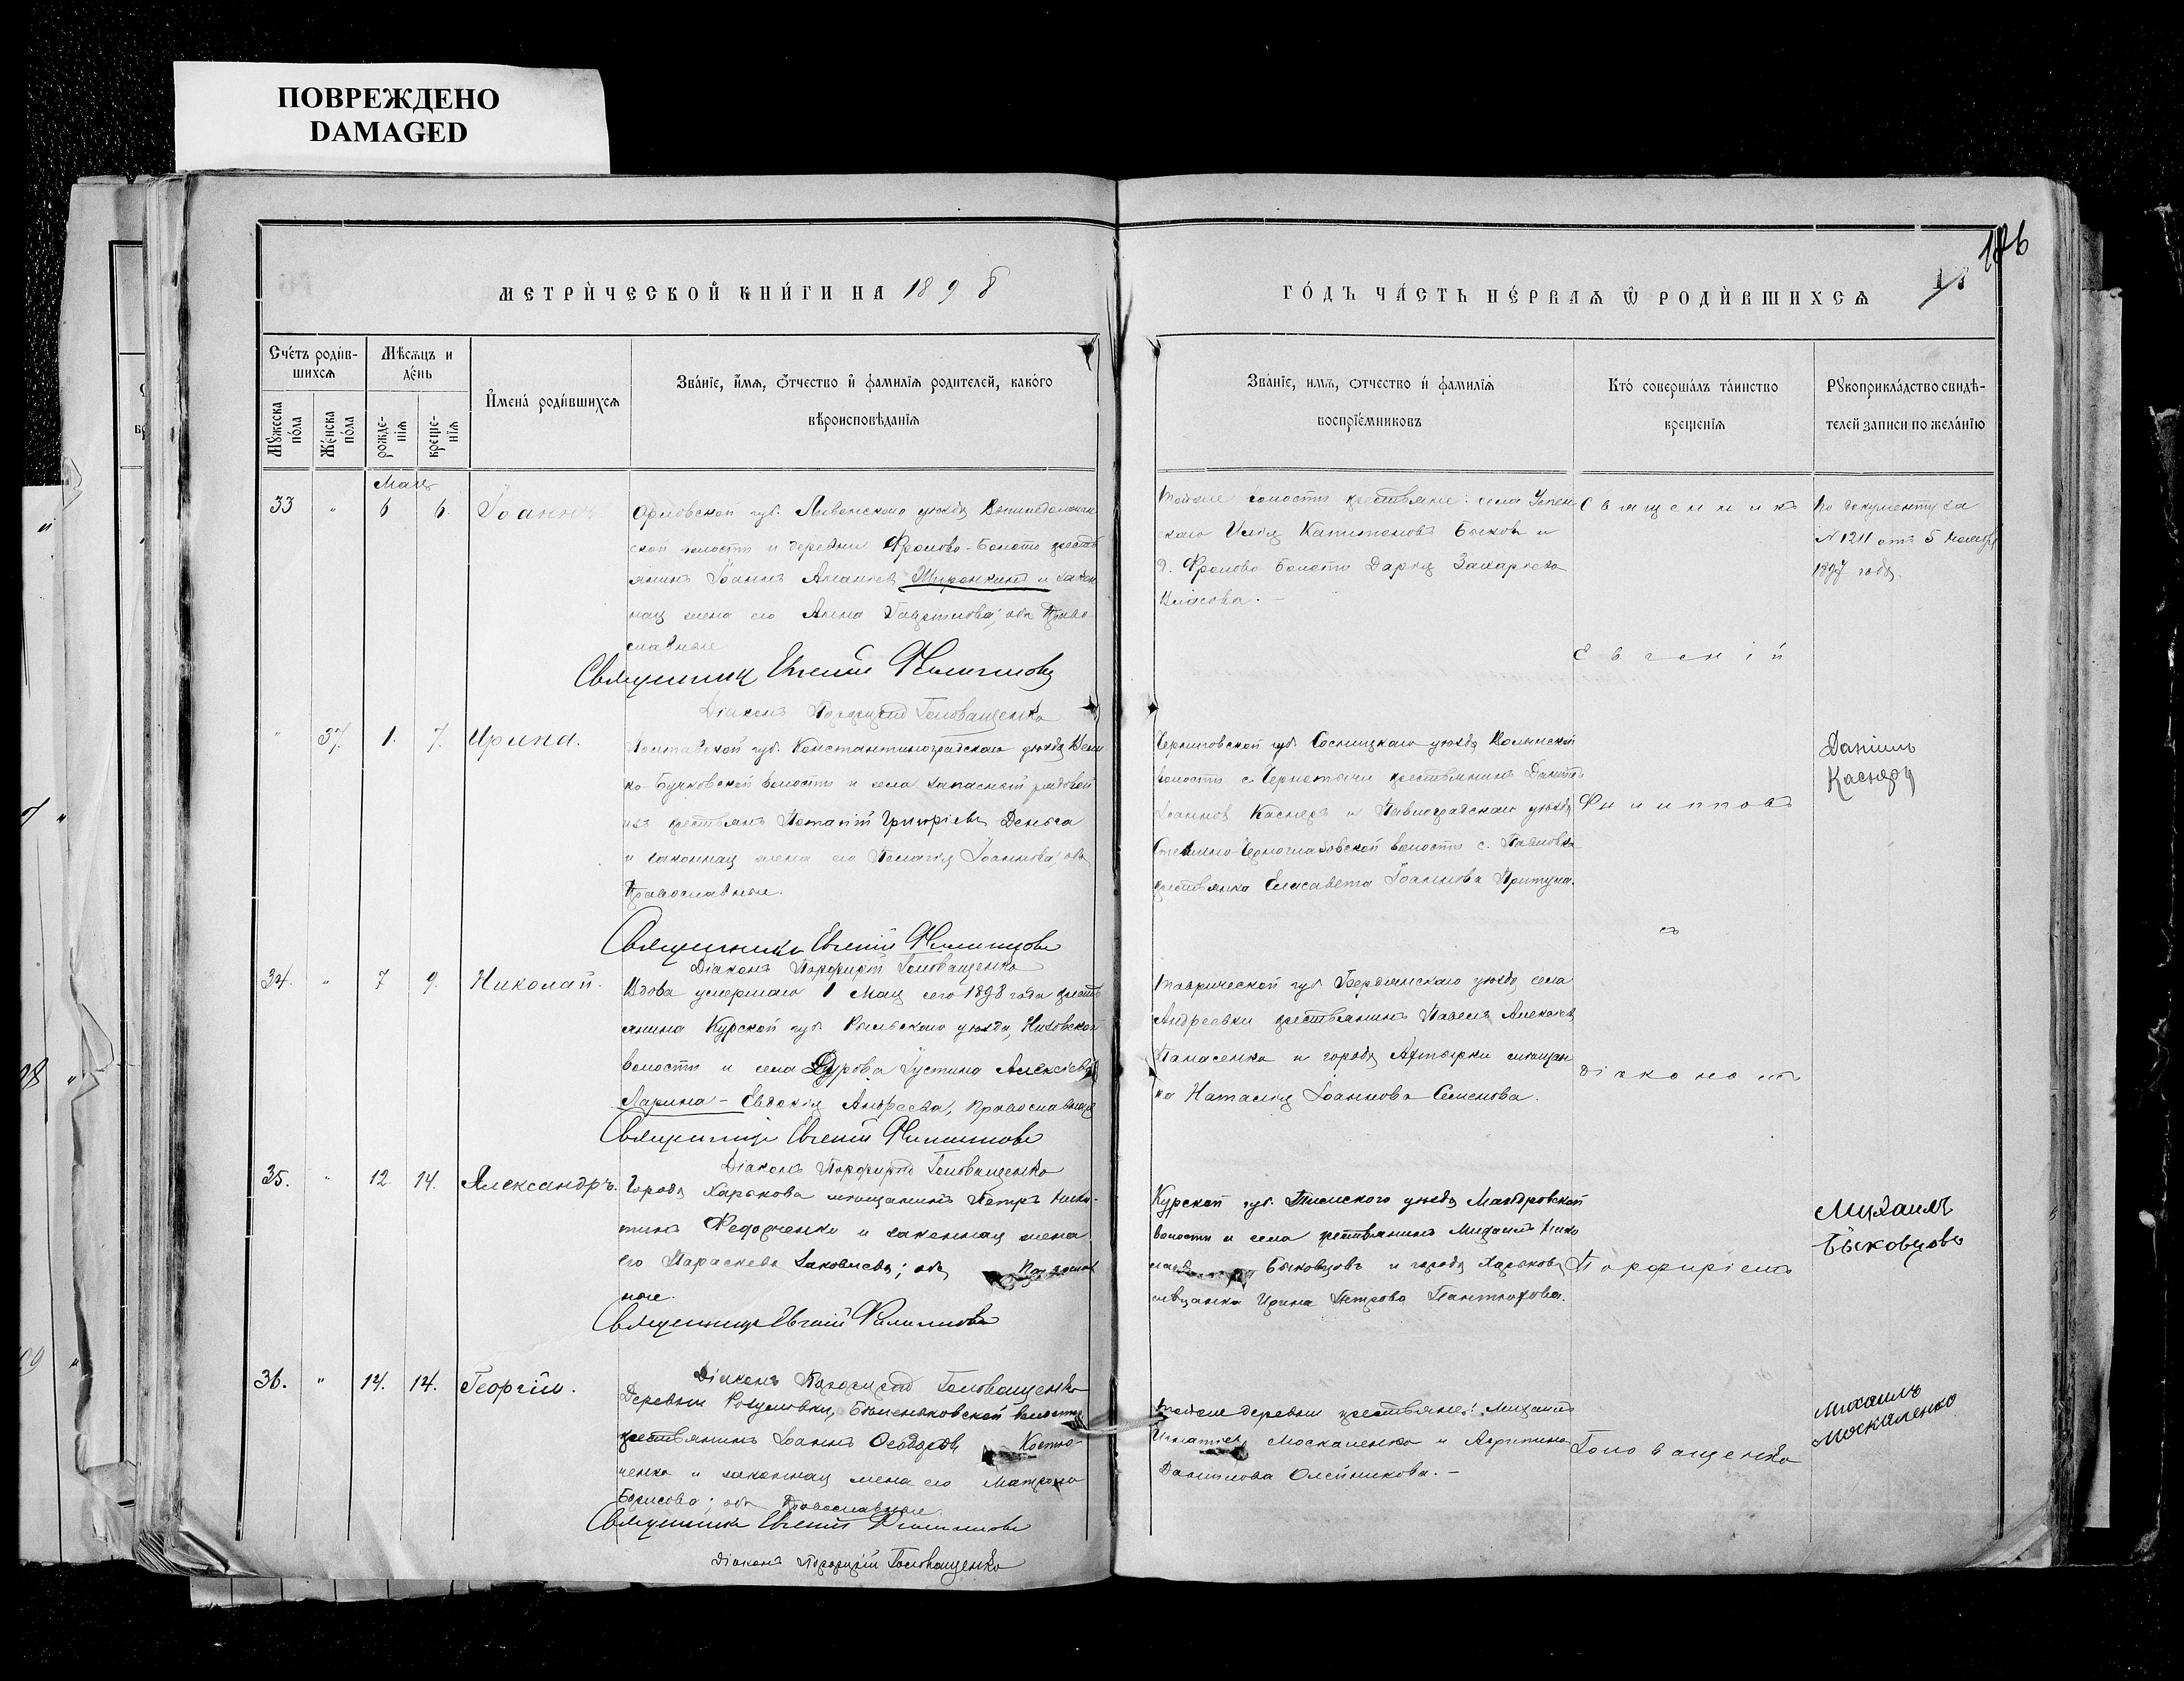 ПОВРЕЖДЕНО
DAMAGED
186
МЕТРИ́ЧЕСКОЙ КНИ́ГИ НА 1898
ГО́ДЪ ЧА́СТЬ ПЕ́РВАѦ Ѡ҆ РОДИ́ВШИХСѦ
Сче́тъ роди́в-
шихсѧ
Мѣ́сѧцъ и
де́нь
И҆мена́ роди́вшихсѧ
Зва́нїе, и҆́мѧ, ѻ҆́тчество и҆ фамилїѧ родителей, како́го
вѣроисповѣ́данїѧ
Мꙋ́жеска
по́ла
Же́нска
по́ла
рожде-
нїѧ
креще-
нїѧ
Зва́нїе, имѧ, ѻтчество и҆ фамилїѧ
воспрїе́мниковъ
Кто́ соверша́лъ та́инство
креще́нїѧ
Рꙋкоприкла́дство свидѣ́-
телей записи по жела́нїю
Май
33 " 6 6. Іоаннъ
Орловской губ. Ливенскаго уѣзда
ской волости и деревни Фролово-Болото крестъ
янинъ Іоаннъ Ананіевъ Жиронкинъ и закон
ная жена его Анна Гавріилова; оба Право
славные
Священникъ Евгеній Филипповъ
Діаконъ Порфирій Головащенко
Тойже волости крестьяне: села Успен
скаго Илія Капитоновъ Быковъ и
д. Фролово-Болото Дарія Захаріева
Власова. –
Священникъ
Евгеній
По документу за
№ 1211 отъ 5 Ноября
1897 года.
" 37. 1. 7. Ирина.
Полтавской губ. Константиноградскаго уѣзда Вели
ко-Бучковской волости и села запасной рядовой
изъ крестьянъ Потапій Григоріевъ Деньга
и законная жена его Пелагія Іоаннова; оба
Православные.
Священникъ Евгеній Филипповъ
Діаконъ Порфирій Головащенко
Черниговской губ. Сосницкаго уѣзда Волынской
волости с. Чернотичи крестьянинъ Даніилъ
Іоанновъ Касперъ и Павлоградскаго уѣзда
волости с. Павловки
крестьянка Елисавета Іоаннова Притула.
Филипповъ
съ
Даніилъ
Касперъ
34. " 7 9. Николай.
Вдова умершаго 1 Мая сего 1898 года кресть
янина Курской губ. Рыльскаго уѣзда,
волости и села Дурова Іустина Алексіева
Ларина – Евдокія Андреева, Православная
Священникъ Евгеній Филипповъ
Діаконъ Порфирій Головащенко
Таврической губ. Бердянскаго уѣзда села
Андреевки крестьянинъ Павелъ Алексіевъ
Панасенко и города Ахтырки мѣщан
ка Наталія Іоаннова Семенова.
діакономъ
35. " 12. 14. Александръ.
Города Харькова мѣщанинъ Петръ Ники-
тинъ Федорченко и законная жена
его Параскева Іаковлева; оба Православ
ные.
Священникъ Евгеній Филипповъ
Діаконъ Порфирій Головащенко
Курской губ. Тимскаго уѣзда Мантуровской
волости и села крестьянинъ Михаилъ Нико
лаевъ Быковцовъ и города Харькова
мѣщанка Ирина Петрова Пантюхова.
Порфиріемъ
Михаилъ
Быковцовъ
36. " 14. 14. Георгій.
Деревни волости
крестьянинъ Іоаннъ Косто-
ченко и законная жена его Матрона
Борисова; оба Православные.
Священникъ Евгеній Филипповъ
Діаконъ Порфирій Головащенко
Тойже деревни крестьяне: Михаилъ
Игнатіевъ Москаленко и Агрипина
Даніилова Олейникова. –
Головащенко
Михаилъ
Москаленко